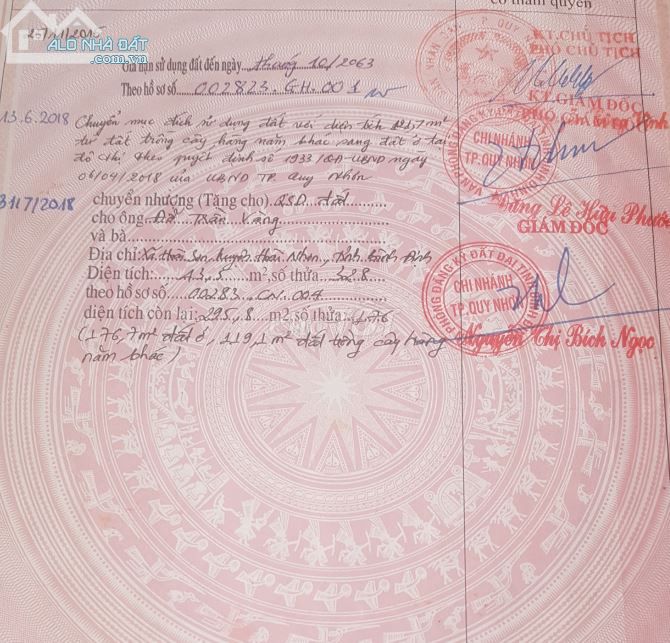 có thẩm quyền
27/11/2015
ALO NHÀ ĐẤT
.com.vn
Gia hạn sử dụng đất đến ngày tháng 10/2063
Theo hồ sơ số 002823.GH.001
KT.CHỦ TỊCH
PHÓ CHỦ TỊCH
KT.GIÁM ĐỐC
13.6.2018 Chuyển mục đích sử dụng đất với diện tích m²
từ đất trồng cây hàng năm khác sang đất ở tại
đô thị theo quyết định số 1933/QĐ-UBND ngày
06/04/2018 của UBND TP. Quy Nhơn
CHI NHÁNH
TP.QUY NHƠN
31/7/2018 chuyển nhượng (Tặng cho) QSD đất
cho ông: Đỗ Trần Vàng
và bà
Đặng Lê Hữu Phước
GIÁM ĐỐC
Địa chỉ: Xã Hoài Sơn, huyện Hoài Nhơn, Tỉnh Bình Định
Diện tích: 43,5 m², số thửa: 328
theo hồ sơ số: 00283.CN.004
diện tích còn lại: 295,8 m2, số thửa: 176
(176,7m² đất ở, 119,1m² đất trồng cây hàng
năm khác)
VĂN PHÒNG ĐĂNG KÝ ĐẤT ĐAI TỈNH BÌNH ĐỊNH
CHI NHÁNH
TP.QUY NHƠN
Nguyễn Thị Bích Ngọc